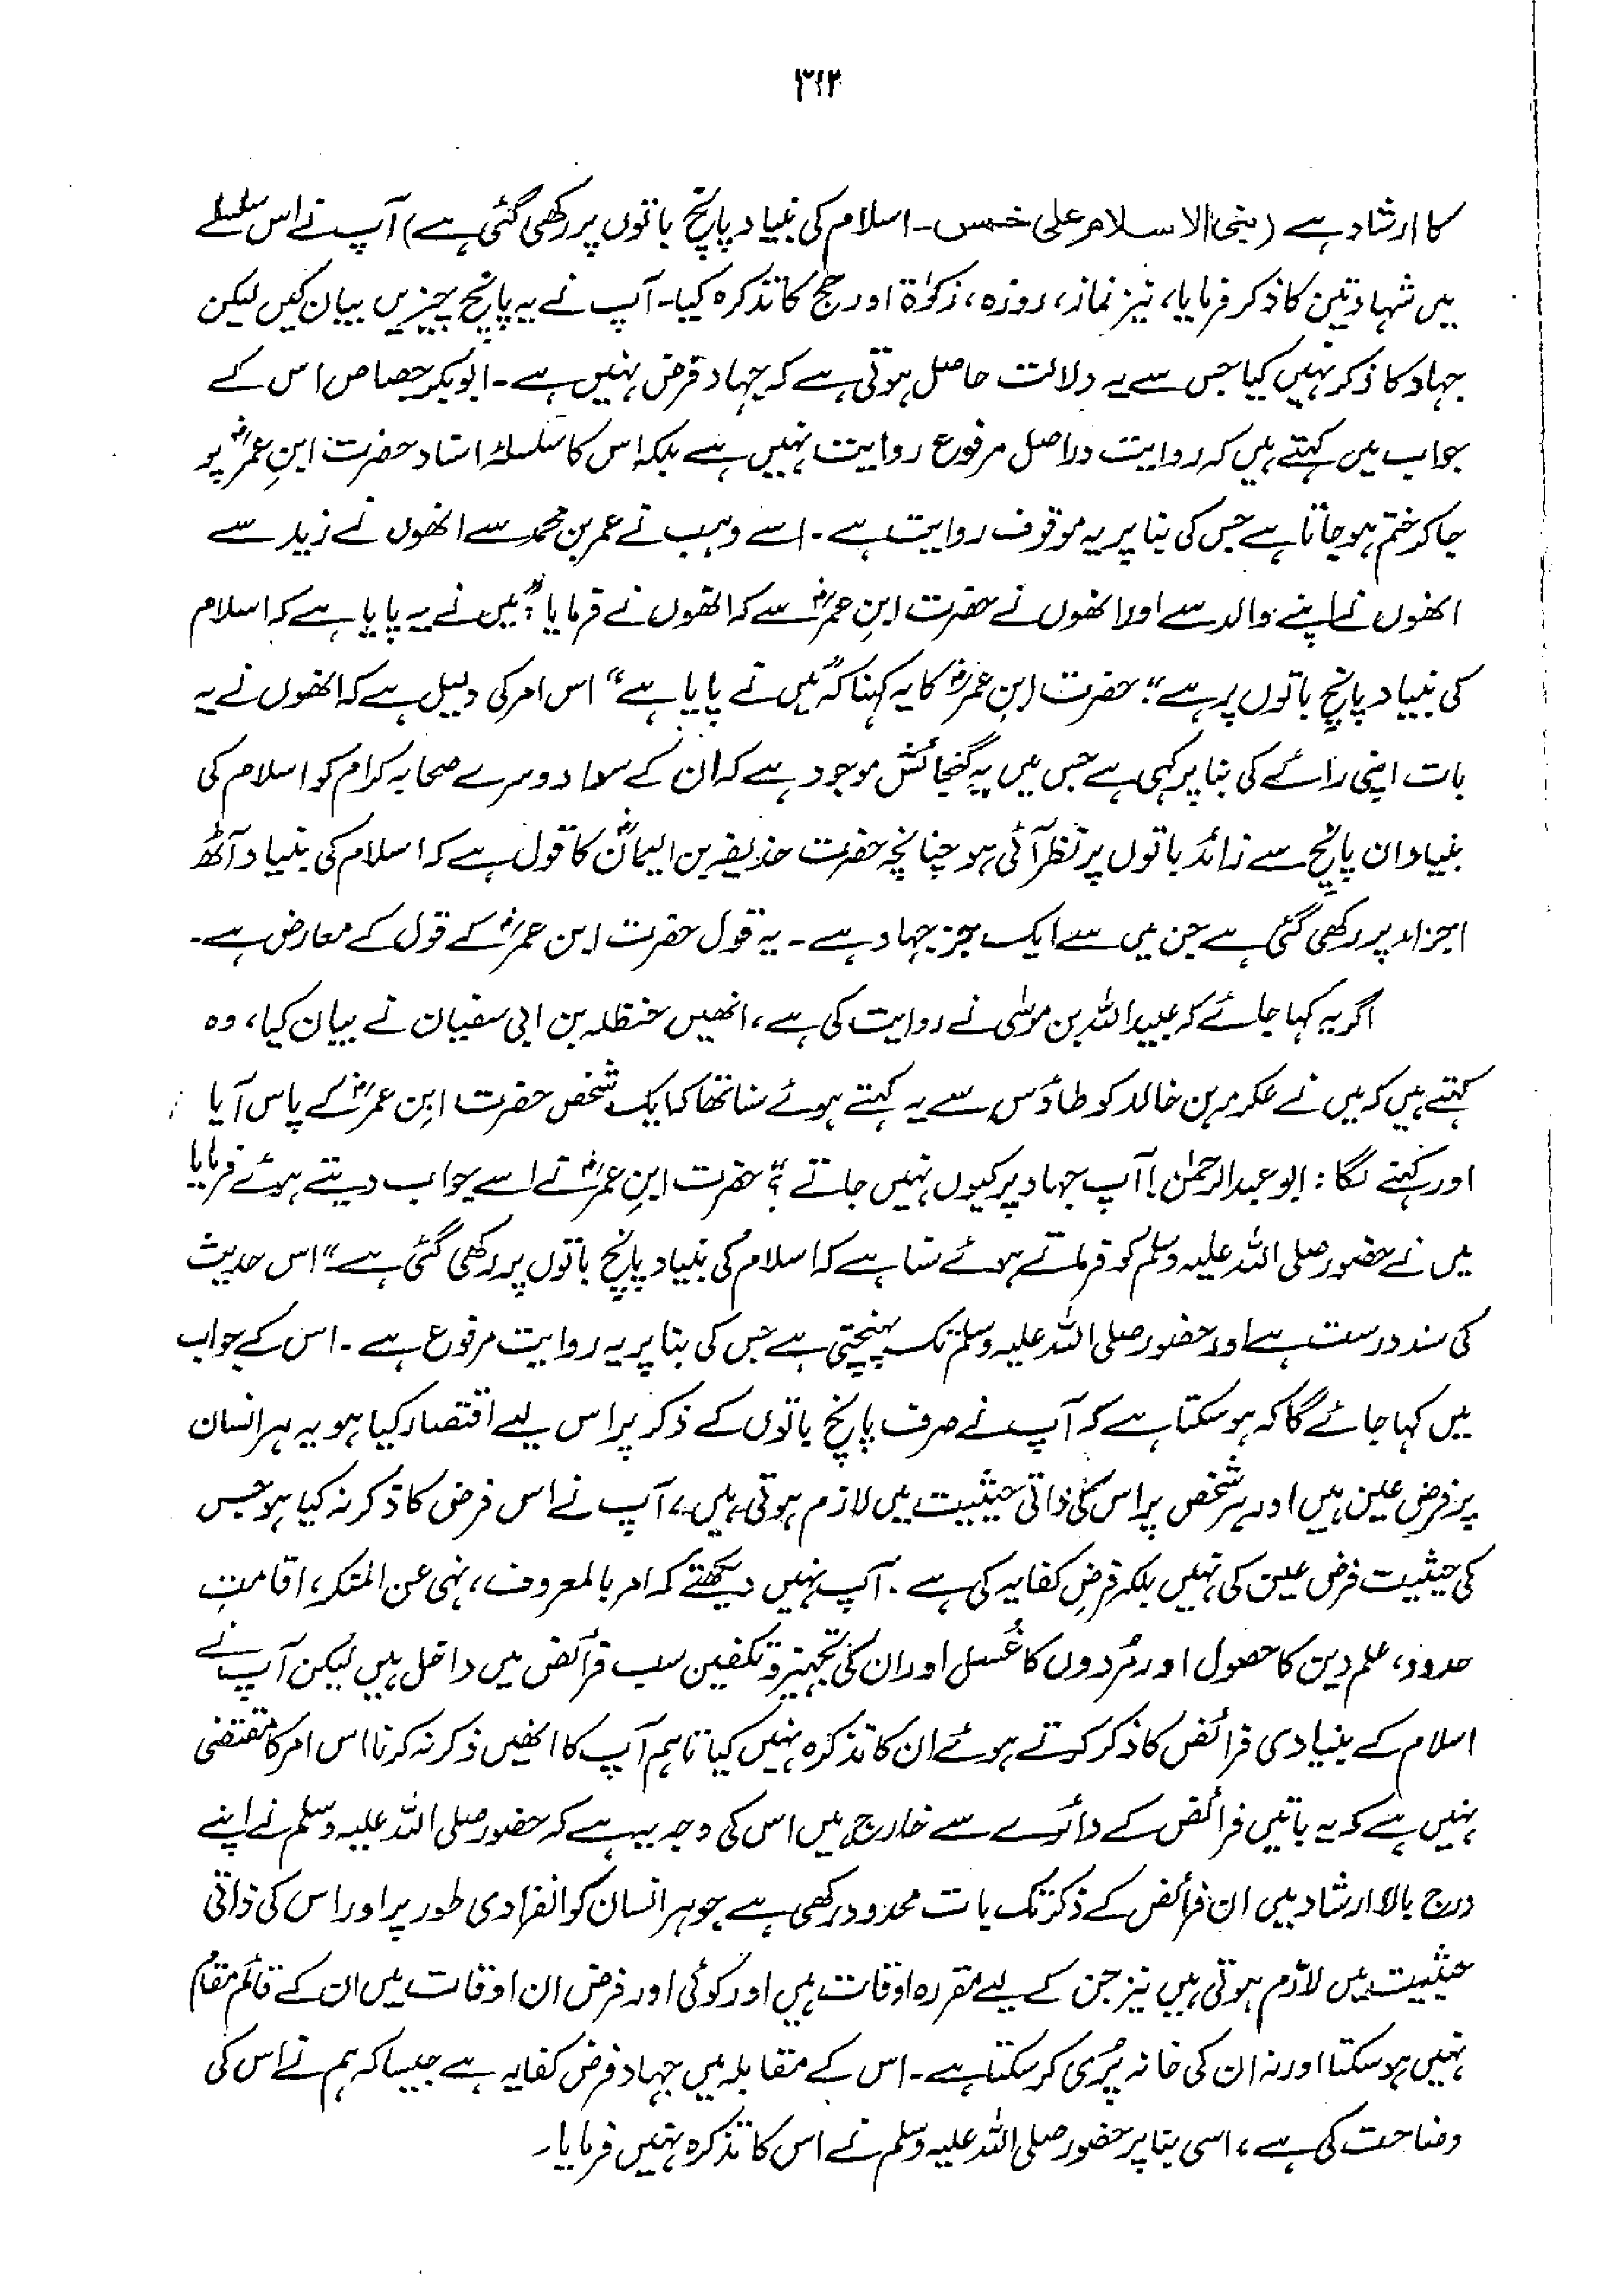 ۳۱۲
کا ارشاد ہے (بنی الاسلام علی خمس۔ اسلام کی بنیاد پانچ باتوں پر رکھی گئی ہے) آپ نے اس سلسلے
میں شہادتین کا ذکر فرمایا، نیز نماز، روزہ، زکوٰۃ اور حج کا تذکرہ کیا۔ آپ نے یہ پانچ چیزیں بیان کیں لیکن
جہاد کا ذکر نہیں کیا جس سے یہ دلالت حاصل ہوتی ہے کہ جہاد فرض نہیں ہے۔ ابوبکر جصاص اس کے
جواب میں کہتے ہیں کہ روایت دراصل مرفوع روایت نہیں ہے بلکہ اس کا سلسلۂ اسناد حضرت ابنِ عمرؓ پر
جا کر ختم ہو جاتا ہے جس کی بنا پر یہ موقوف روایت ہے۔ اسے وہب نے عمر بن محمد سے انھوں نے زید سے
انھوں نے اپنے والد سے اور انھوں نے حضرت ابنِ عمرؓ سے کہ انھوں نے فرمایا: "میں نے یہ پایا ہے کہ اسلام
کی بنیاد پانچ باتوں پر ہے"۔ حضرت ابنِ عمرؓ کا یہ کہنا کہ "میں نے پایا ہے" اس امر کی دلیل ہے کہ انھوں نے یہ
بات اپنی رائے کی بنا پر کہی ہے جس میں یہ گنجائش موجود ہے کہ ان کے سوا دوسرے صحابہ کرام کو اسلام کی
بنیاد ان پانچ سے زائد باتوں پر نظر آئی ہو چنانچہ حضرت حذیفہ بن الیمانؓ کا قول ہے کہ اسلام کی بنیاد آٹھ
اجزاء پر رکھی گئی ہے جن میں سے ایک جز جہاد ہے۔ یہ قول حضرت ابن عمرؓ کے قول کے معارض ہے۔
اگر یہ کہا جائے کہ عبید اللہ بن موسٰی نے روایت کی ہے، انھیں حنظلہ بن ابی سفیان نے بیان کیا، وہ
کہتے ہیں کہ میں نے عکرمہ بن خالد کو طاؤس سے یہ کہتے ہوئے سنا تھا کہ ایک شخص حضرت ابنِ عمرؓ کے پاس آیا
اور کہنے لگا: ابو عبدالرحمٰن! آپ جہاد پر کیوں نہیں جاتے؟" حضرت ابنِ عمرؓ نے اسے جواب دیتے ہوئے فرمایا
میں نے حضور صلی اللہ علیہ وسلم کو فرماتے ہوئے سنا ہے کہ اسلام کی بنیاد پانچ باتوں پر رکھی گئی ہے" اس حدیث
کی سند درست ہے اور حضور صلی اللہ علیہ وسلم تک پہنچتی ہے جس کی بنا پر یہ روایت مرفوع ہے۔ اس کے جواب
میں کہا جائے گا کہ ہو سکتا ہے کہ آپ نے صرف پانچ باتوں کے ذکر پر اس لیے اقتصار کیا ہو یہ ہر انسان
پر فرضِ عین ہیں اور ہر شخص پر اس کی ذاتی حیثیت میں لازم ہوتی ہیں، آپ نے اس فرض کا ذکر نہ کیا ہو جس
کی حیثیت فرض عین کی نہیں بلکہ فرضِ کفایہ کی ہے۔ آپ نہیں دیکھتے کہ امر بالمعروف، نہی عن المنکر، اقامتِ
حدود، علم دین کا حصول اور مُردوں کا غُسل اور ان کی تجہیز و تکفین سب فرائض میں داخل ہیں لیکن آپ نے
اسلام کے بنیادی فرائض کا ذکر کرتے ہوئے ان کا تذکرہ نہیں کیا تاہم آپ کا انھیں ذکر نہ کرنا اس امر کا مقتضی
نہیں ہے کہ یہ باتیں فرائض کے دائرے سے خارج ہیں اس کی وجہ یہ ہے کہ حضور صلی اللہ علیہ وسلم نے اپنے
درج بالا ارشاد میں ان فرائض کے ذکر تک بات محدود رکھی ہے جو ہر انسان کو انفرادی طور پر اور اس کی ذاتی
حیثیت میں لازم ہوتی ہیں نیز جن کے لیے مقررہ اوقات ہیں اور کوئی اور فرض ان اوقات میں ان کے قائم مقام
نہیں ہو سکتا اور نہ ان کی خانہ پُری کر سکتا ہے۔ اس کے مقابلہ میں جہاد فرض کفایہ ہے جیسا کہ ہم نے اس کی
وضاحت کی ہے، اسی بنا پر حضور صلی اللہ علیہ وسلم نے اس کا تذکرہ نہیں فرمایا۔